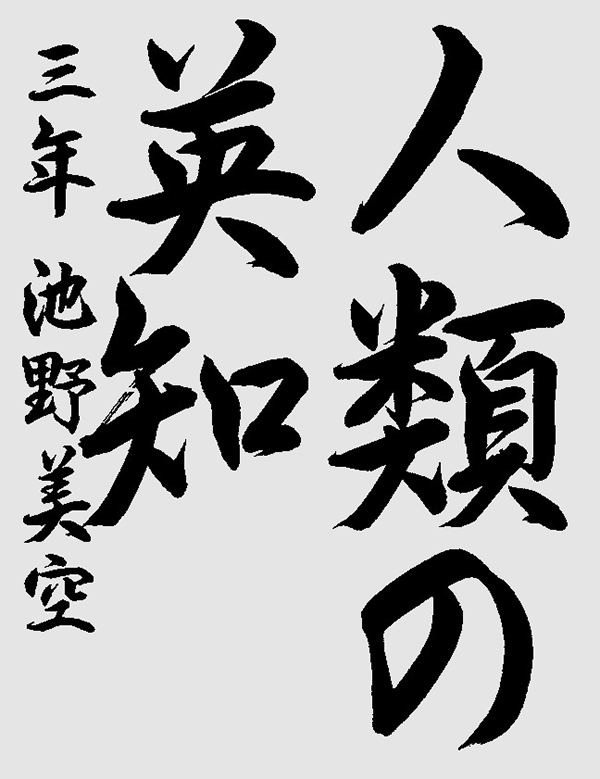 人類の
英知
三年 池野美空